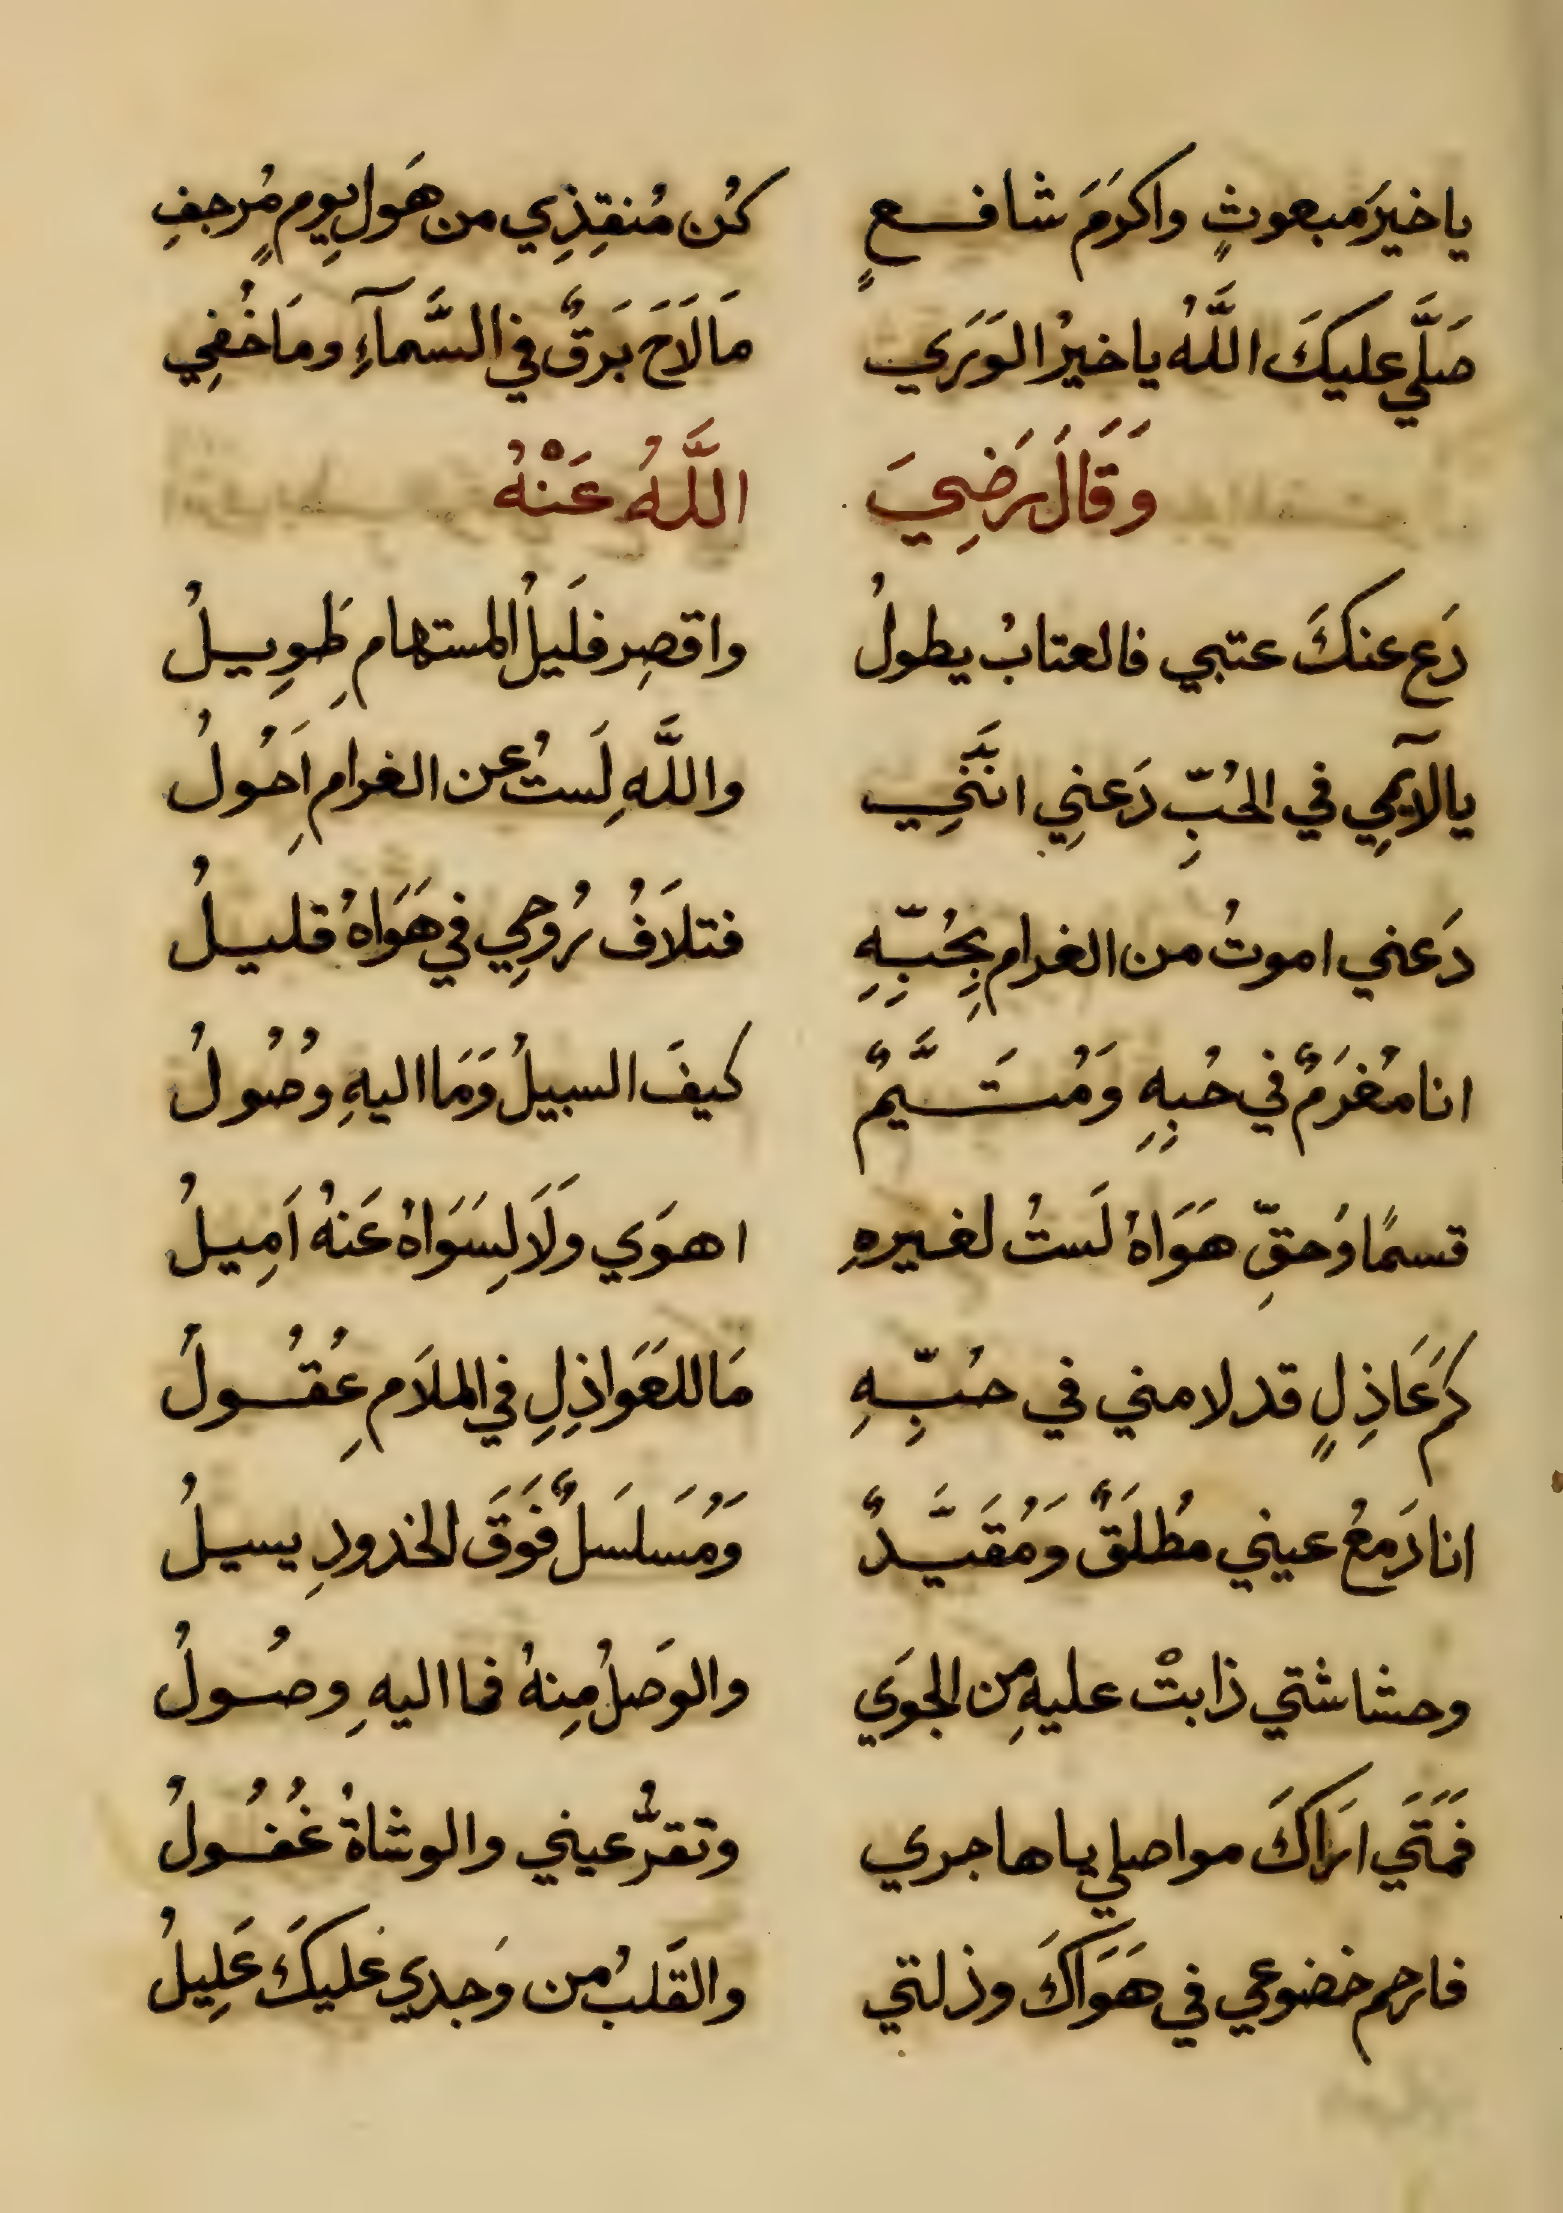 ياخيرَ مبعوثٍ واكرَمَ شافعٍ كُن مُنقِذِي من هَولِ يومٍ مُرجفِ
صَلَّي عليكَ اللَّهُ ياخيرُ الوَرَي مَالَاحَ بَرَقٌ في السَّمآءِ ومَاخُفِي
وَقَالَ رَضِيَ اللَّهُ عَنْهُ
دَع عنكَ عتبي فالعتابُ يطولُ واقصِر فلَيلُ المستهامِ طَوِيلُ
يالآيمِي في الحُبِّ دَعنِي اننَّنِي واللَّهِ لَستُ عن الغرامِ اَحُولُ
دَعني اموتُ من الغرامِ بِحُبِّهِ فتلاَفُ رُوحِي في هَوَاهُ قليلُ
انامُغرَمٌ في حُبِهِ وَمُتَيَّمٌ كيفَ السبيلُ وَمَا اليهِ وُصُولُ
قسمًا وَحقِّ هَوَاهُ لَستُ لغيرهِ اهوَي ولَا لِسَوَاهُ عَنهُ اَمِيلُ
كَم عَاذِلٍ قد لامني في حُبِّهِ مَا للعَوَاذِلِ في الملاَمِ عُقُولُ
انا دَمعُ عيني مُطلَقٌ وَمُقَيَّدٌ وَمُسَلسَلٌ فَوَقَ الخدودِ يسيلُ
وحشاشتي ذابتْ عليهِ من الجوَي والوَصلُ مِنهُ فما اليهِ وصُولُ
فَمَتَي اَرَاكَ مواصلي يا هاجري وتقرُّ عيني والوشاةُ غُفُولُ
فارحم خضوعي في هَوَاكَ وذلتي والقَلبُ من وَجدي عَليكَ عَلِيلُ